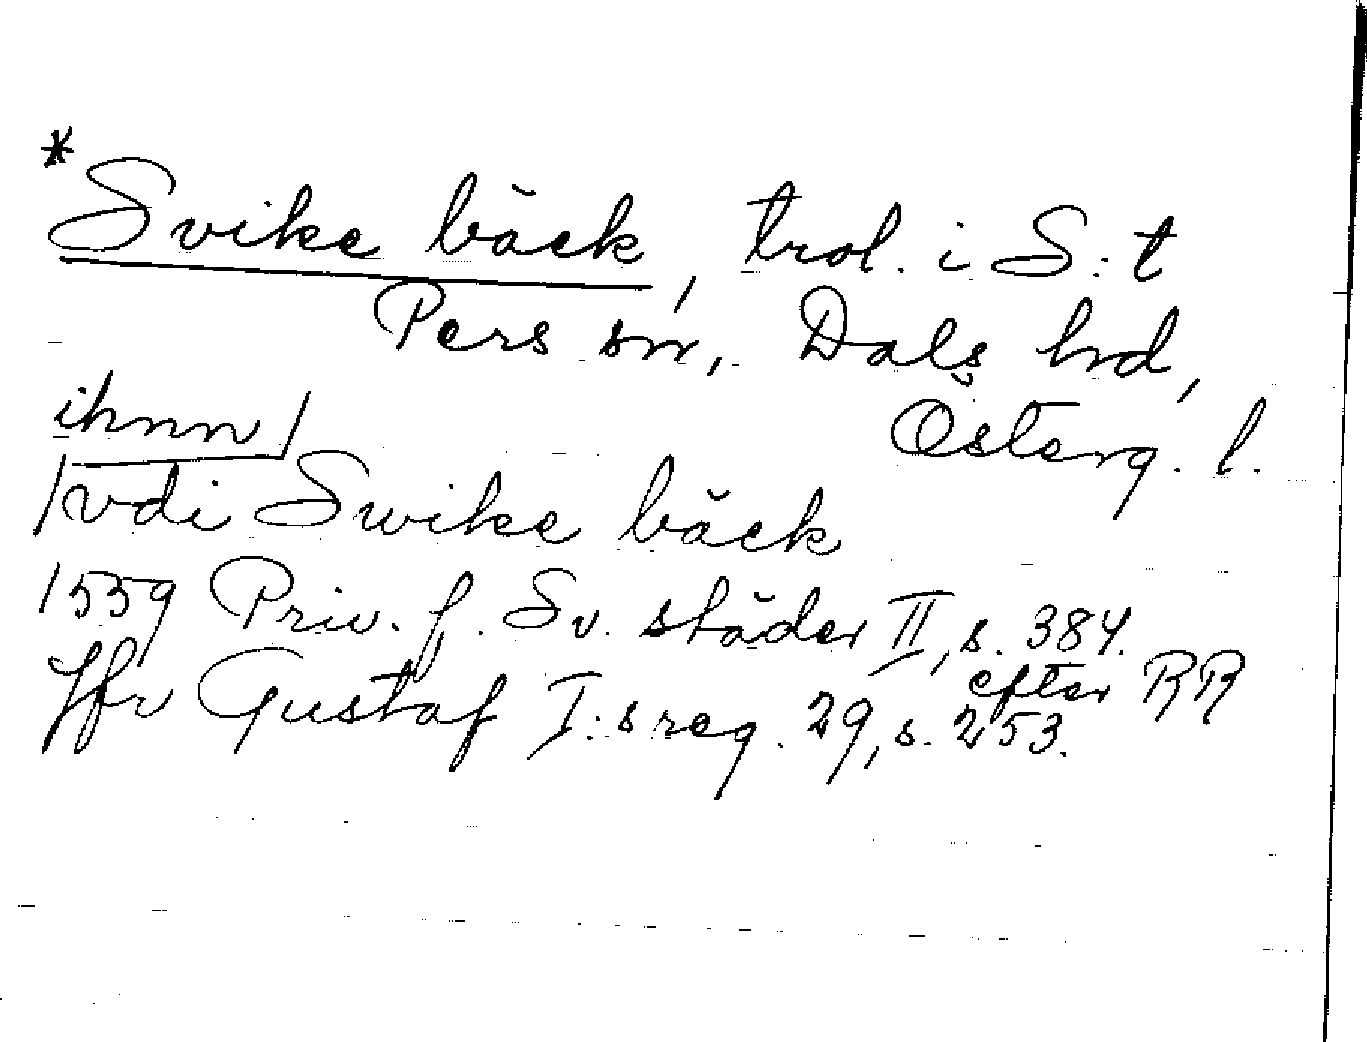 *Svike bäck, trol. i S:t
Pers sn, Dals hd,
Österg. l.
ihnn/
/vdi Swike bäck
1559 Priv. f. Sv. städer II, s. 384.
efter RR
Jfr Gustaf I:s reg. 29, s. 253.